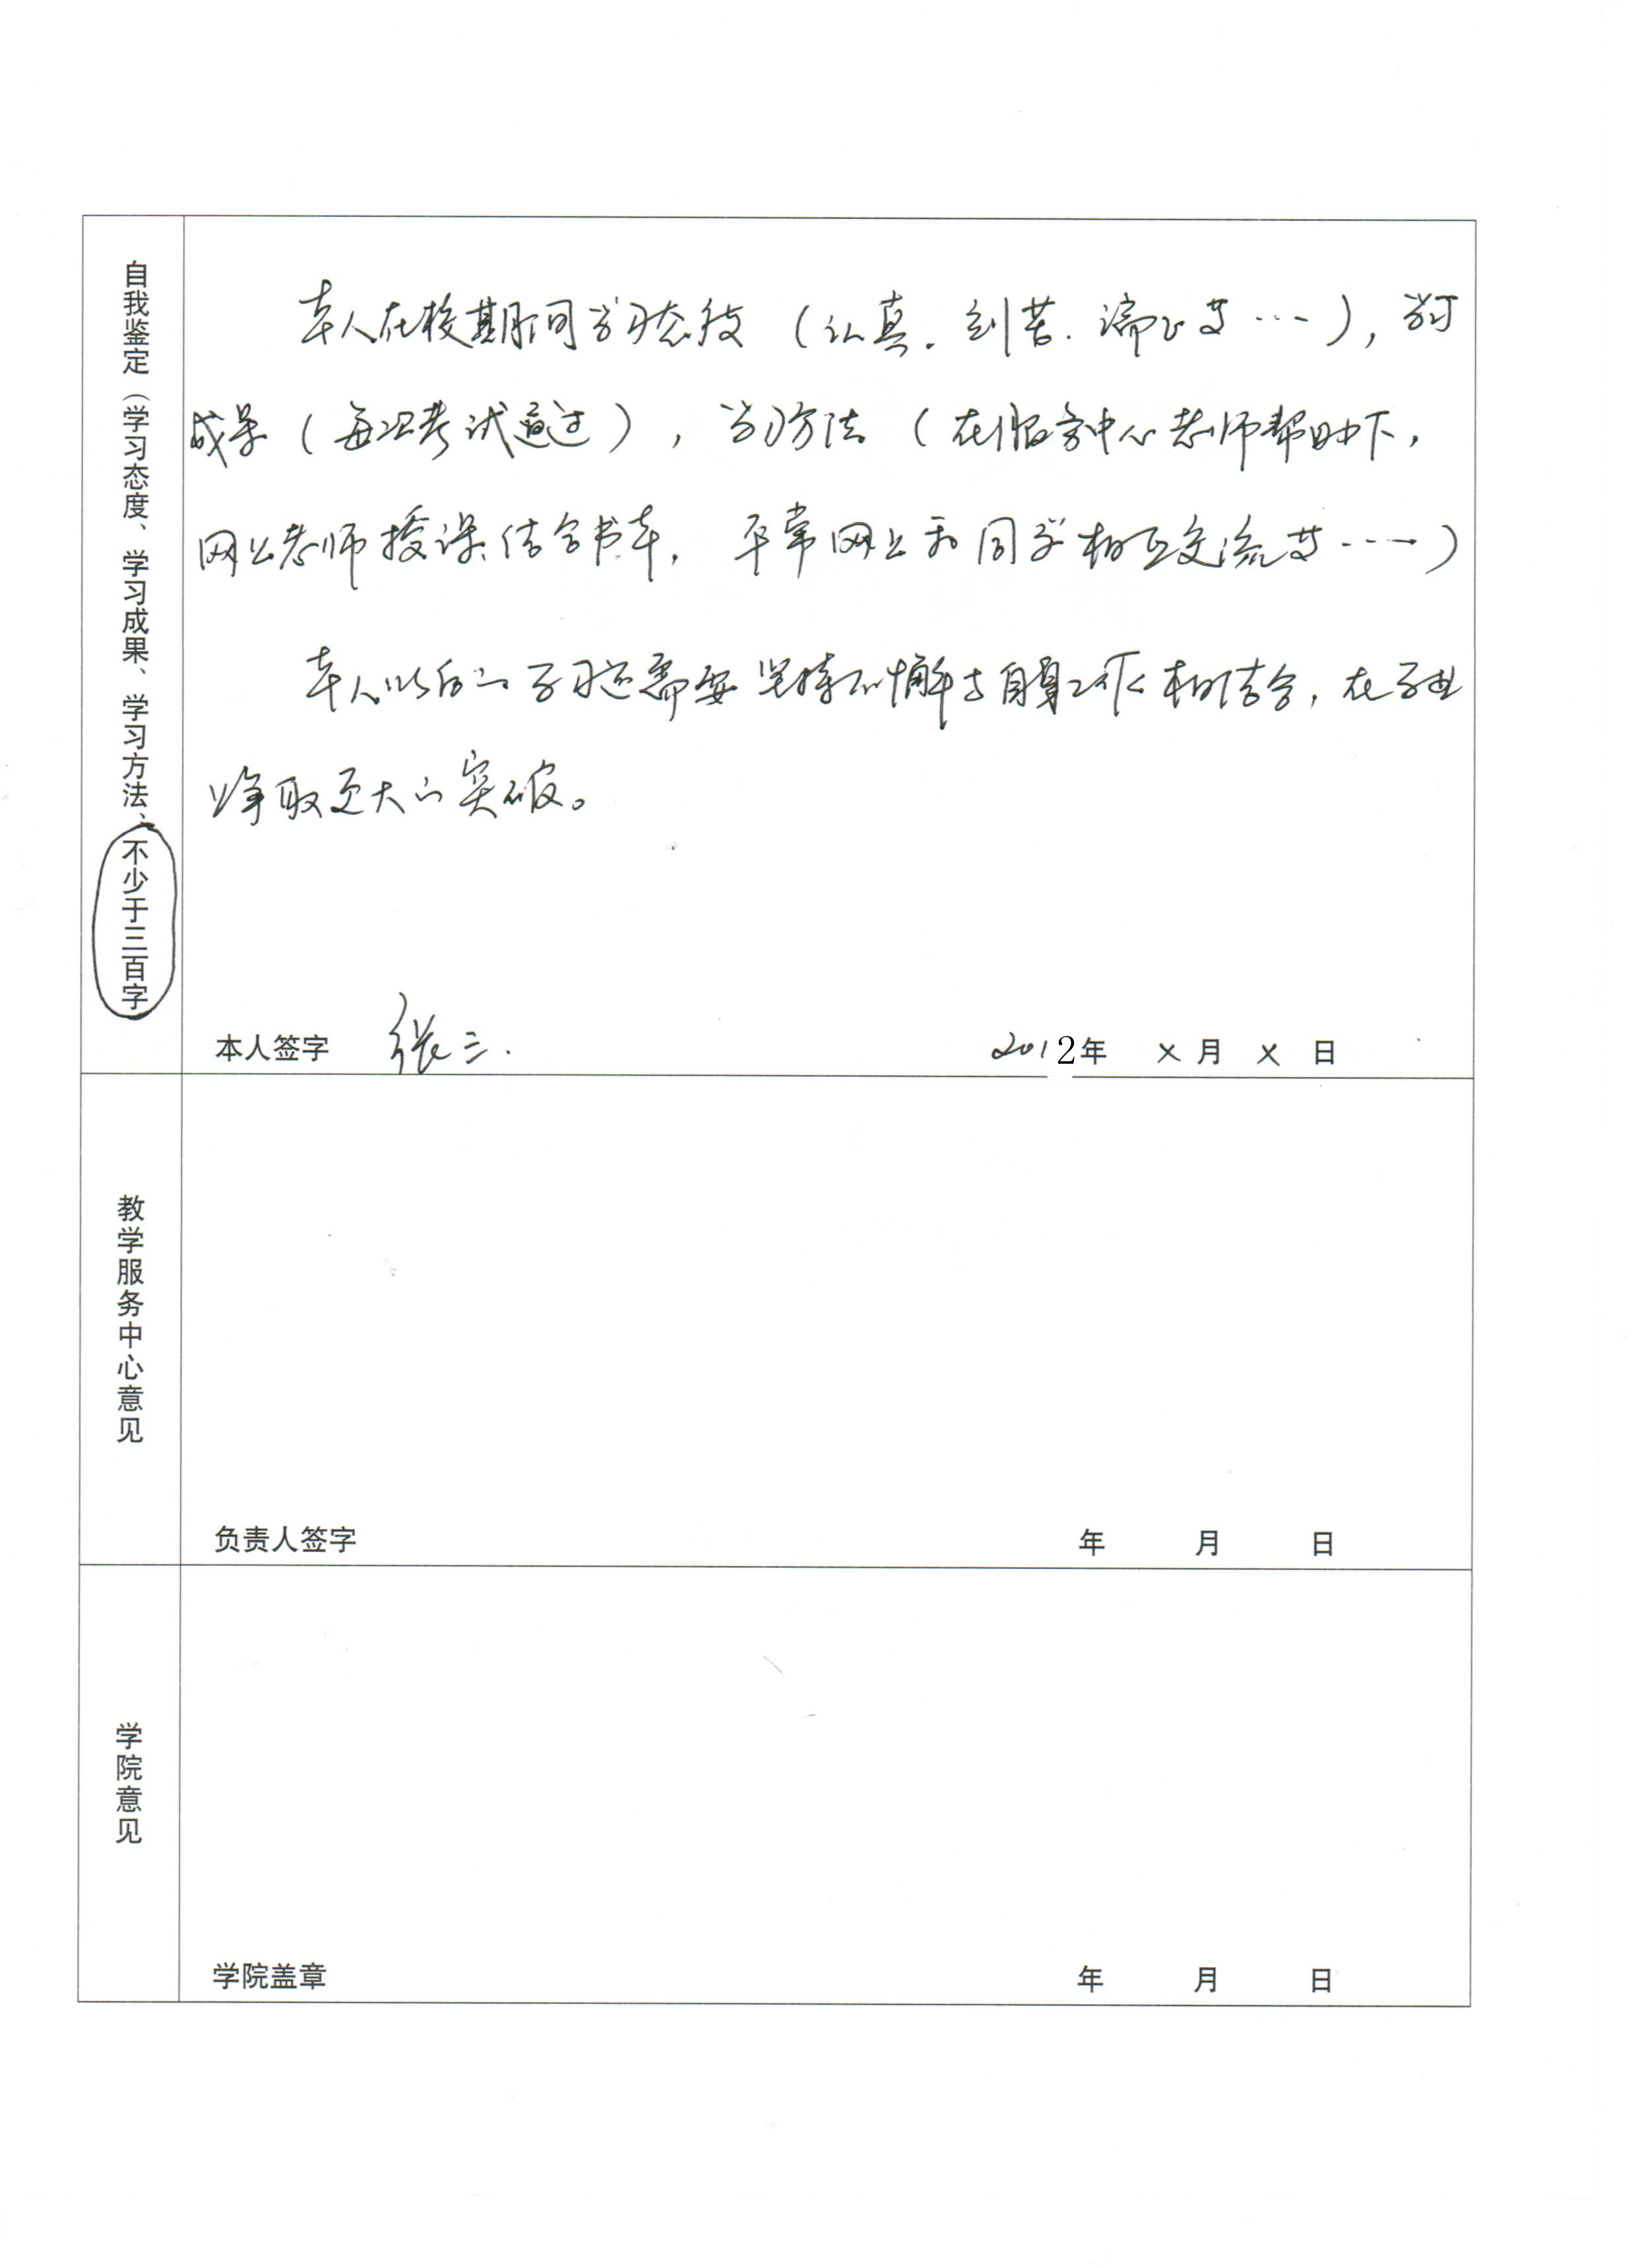 自我鉴定（学习态度、学习成果、学习方法、不少于三百字
本人在校期间学习态度（认真．刻苦．端正等……），学习
成果（每次考试通过），学习方法（在服务中心老师帮助下，
网上老师授课结合书本，平常网上和同学相互交流等……）
本人以后的学习还需要坚持不懈与自身工作相结合，在学业
上争取更大的突破。
本人签字 张三． 2012年 × 月 × 日
教学服务中心意见
负责人签字 年 月 日
学院意见
学院盖章 年 月 日